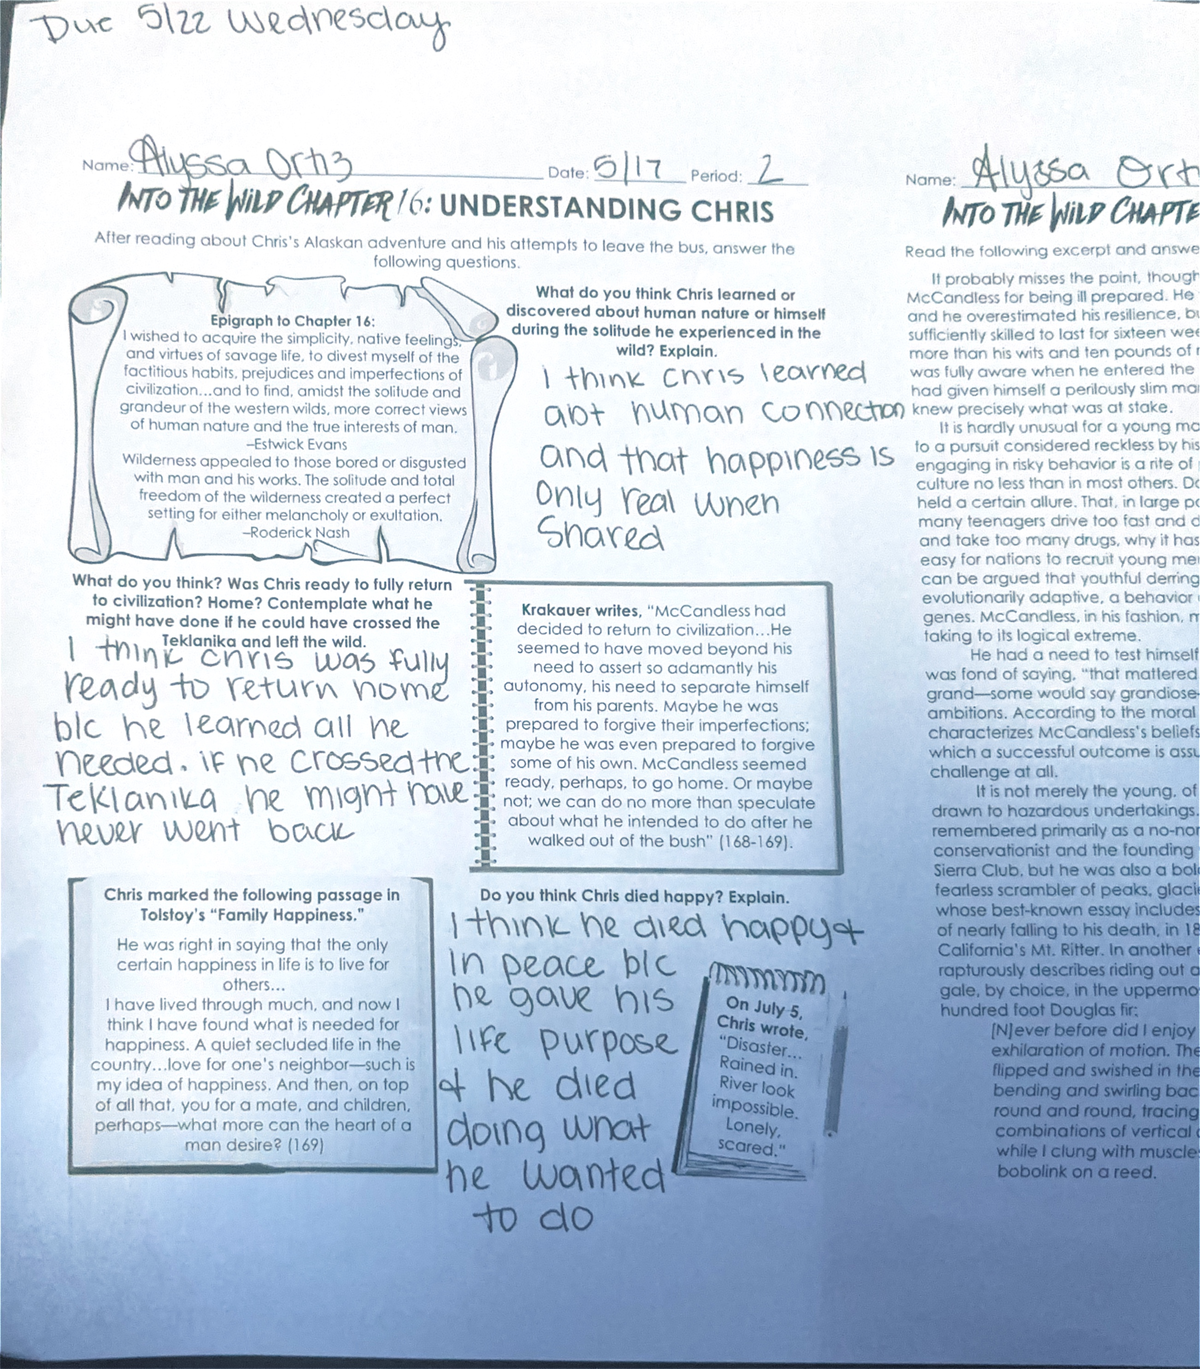 Due 5/22 Wednesday
Name: Alyssa Ortiz Date: 5/17 Period: 2
INTO THE WILD CHAPTER 16: UNDERSTANDING CHRIS
After reading about Chris's Alaskan adventure and his attempts to leave the bus, answer the
following questions.
Epigraph to Chapter 16:
I wished to acquire the simplicity, native feelings,
and virtues of savage life, to divest myself of the
factitious habits, prejudices and imperfections of
civilization...and to find, amidst the solitude and
grandeur of the western wilds, more correct views
of human nature and the true interests of man.
–Estwick Evans
Wilderness appealed to those bored or disgusted
with man and his works. The solitude and total
freedom of the wilderness created a perfect
setting for either melancholy or exultation.
–Roderick Nash
What do you think Chris learned or
discovered about human nature or himself
during the solitude he experienced in the
wild? Explain.
I think Chris learned
abt human connection
and that happiness is
only real when
Shared
What do you think? Was Chris ready to fully return
to civilization? Home? Contemplate what he
might have done if he could have crossed the
Teklanika and left the wild.
I think Chris was fully
ready to return home
b/c he learned all he
needed. if he crossed the
Teklanika he might have
never went back
Krakauer writes, "McCandless had
decided to return to civilization...He
seemed to have moved beyond his
need to assert so adamantly his
autonomy, his need to separate himself
from his parents. Maybe he was
prepared to forgive their imperfections;
maybe he was even prepared to forgive
some of his own. McCandless seemed
ready, perhaps, to go home. Or maybe
not; we can do no more than speculate
about what he intended to do after he
walked out of the bush" (168-169).
Chris marked the following passage in
Tolstoy's "Family Happiness."
He was right in saying that the only
certain happiness in life is to live for
others...
I have lived through much, and now I
think I have found what is needed for
happiness. A quiet secluded life in the
country...love for one's neighbor—such is
my idea of happiness. And then, on top
of all that, you for a mate, and children,
perhaps—what more can the heart of a
man desire? (169)
Do you think Chris died happy? Explain.
I think he died happy &
in peace b/c
he gave his
life purpose
& he died
doing what
he wanted
to do
On July 5,
Chris wrote,
"Disaster...
Rained in.
River look
impossible.
Lonely,
scared."
Name: Alyssa Ort
INTO THE WILD CHAPTE
Read the following excerpt and answe
It probably misses the point, though
McCandless for being ill prepared. He
and he overestimated his resilience, bu
sufficiently skilled to last for sixteen wee
more than his wits and ten pounds of r
was fully aware when he entered the
had given himself a perilously slim mar
knew precisely what was at stake.
It is hardly unusual for a young ma
to a pursuit considered reckless by his
engaging in risky behavior is a rite of
culture no less than in most others. Da
held a certain allure. That, in large pa
many teenagers drive too fast and d
and take too many drugs, why it has
easy for nations to recruit young me
can be argued that youthful derring
evolutionarily adaptive, a behavior
genes. McCandless, in his fashion, m
taking to its logical extreme.
He had a need to test himself
was fond of saying, "that mattered
grand—some would say grandiose
ambitions. According to the moral
characterizes McCandless's beliefs
which a successful outcome is assu
challenge at all.
It is not merely the young, of
drawn to hazardous undertakings.
remembered primarily as a no-non
conservationist and the founding
Sierra Club, but he was also a bol
fearless scrambler of peaks, glaci
whose best-known essay includes
of nearly falling to his death, in 18
California's Mt. Ritter. In another
rapturously describes riding out a
gale, by choice, in the uppermo
hundred foot Douglas fir:
[N]ever before did I enjoy
exhilaration of motion. The
flipped and swished in the
bending and swirling bac
round and round, tracing
combinations of vertical
while I clung with muscle
bobolink on a reed.